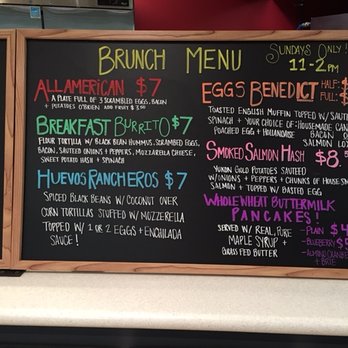 BRUNCH MENU
SUNDAYS ONLY!
11-2PM
ALLAMERICAN $7
A PLATE FULL OF 3 SCRAMBLED EGGS, BACON
+ POTATOES O'BRIEN
BREAKFAST BURRITO $7
FLOUR TORTILLA W/ BLACK BEAN HUMMUS, SCRAMBLED EGGS,
BACON, SAUTÉED ONIONS + PEPPERS, MOZZARELLA CHEESE,
SWEET POTATO HASH + SPINACH
HUEVOS RANCHEROS $7
SPICED BLACK BEANS W/ COCONUT OVER
CORN TORTILLAS STUFFED W/ MOZZERELLA
TOPPED W/ 1 OR 2 EGGS + ENCHILADA
SAUCE!
EGGS BENEDICT HALF-
FULL-
TOASTED ENGLISH MUFFIN TOPPED W/ SAUTÉED
SPINACH + YOUR CHOICE OF: HOUSEMADE CAN
POACHED EGG + HOLLANDAISE BACON
SALMON LO
SMOKED SALMON HASH $8
YUKON GOLD POTATOES SAUTÉED
W/ ONIONS + PEPPERS + CHUNKS OF HOUSE SM
SALMON + TOPPED W/ BASTED EGG
WHOLE WHEAT BUTTERMILK
PANCAKES!
SERVED W/ REAL, PURE
MAPLE SYRUP +
GRASS FED BUTTER
-PLAIN $4
-BLUEBERRY $5
-ALMOND CRANBE
+ BRIE